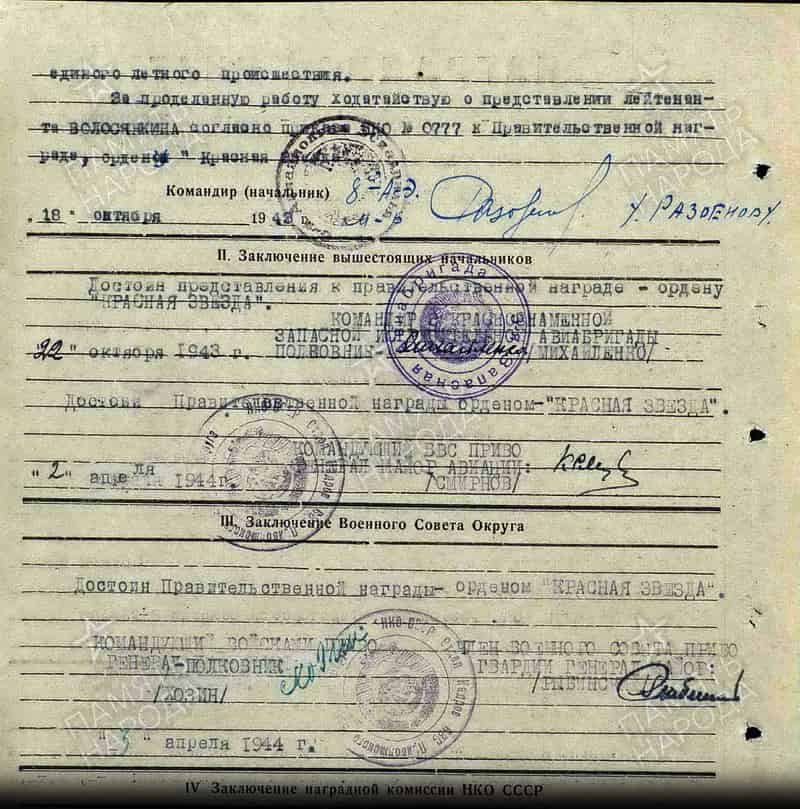 единого летного происшествия.
За проделанную работу ходатайствую о представлении лейтенан-
та ВОЛОСЯНКИНА согласно Приказа НКО № 0777 к Правительственной наг-
раде, ордену "Красная
Командир (начальник) 8-
"18" октября 1943 У. РАЗОЕНОВУ.
II. Заключение вышестоящих начальников
Достоин представления к правительственной награде - ордену
"КРАСНАЯ ЗВЕЗДА".
КОМАНДИР КРАСНОЗНАМЕННОЙ
ЗАПАСНОЙ АВИАБРИГАДЫ
"22" октября 1943 г. ПОЛКОВНИК- /МИХАЙЛЕНКО/
Достоин Правительственной награды орденом-"КРАСНАЯ ЗВЕЗДА".
КОМАНДУЮЩИЙ ВВС ПРИВО
"2" апреля 1944г. ГЕНЕРАЛ МАЙОР АВИАЦИИ:
/СМИРНОВ/
III. Заключение Военного Совета Округа
Достоин Правительственной награды- орденом "КРАСНАЯ ЗВЕЗДА".
КОМАНДУЮЩИЙ ВОЙСКАМИ ПРИВО ЧЛЕН ВОЕННОГО СОВЕТА ПРИВО
ГЕНЕРАЛ-ПОЛКОВНИК ГВАРДИИ ГЕНЕРАЛ МАЙОР:
/ХОЗИН/
"3" апреля 1944 г.
IV Заключение наградной комиссии НКО СССР
ПАМЯТЬ НАРОДА